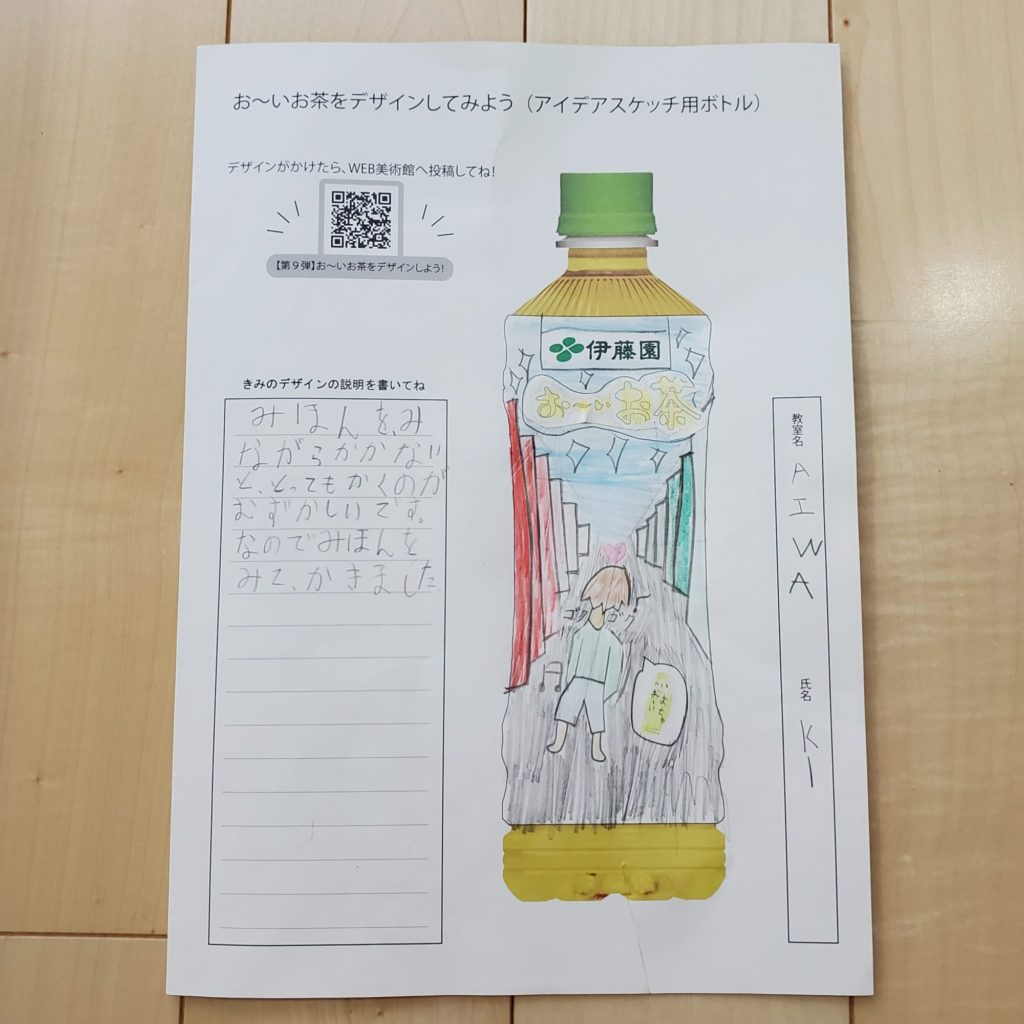 お～いお茶をデザインしてみよう（アイデアスケッチ用ボトル）
デザインがかけたら、WEB美術館へ投稿してね！
【第９弾】お～いお茶をデザインしよう！
きみのデザインの説明を書いてね
みほんを、み
ながらかかない
と、とってもかくのが
むずかしいです。
なのでみほんを
みて、かきました。
伊藤園
お～いお茶
ゴク ゴク
教室名
AIWA
氏名
KI